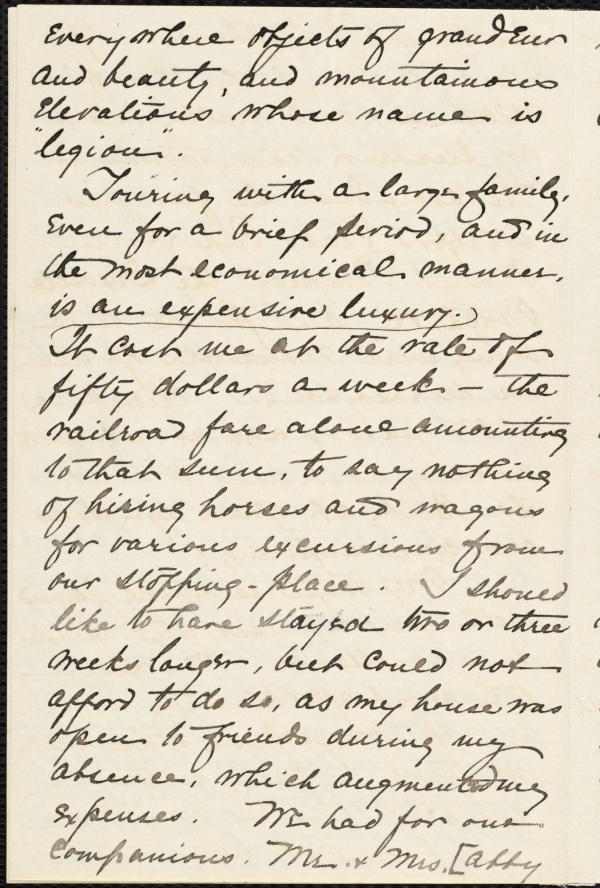 Everywhere objects of grandeur
and beauty, and mountainous
elevations whose name is
"legion".
Touring with a large family,
even for a brief period, and in
the most economical manner,
is an expensive luxury.
It cost me at the rate of
fifty dollars a week – the
railroad fare alone amounting
to that sum, to say nothing
of hiring horses and wagons
for various excursions from
our stopping-place. I should
like to have stayed two or three
weeks longer, but could not
afford to do so, as my house was
open to friends during my
absence, which augmented my
expenses. We had for our
companions. Mr. & Mrs. [Abby